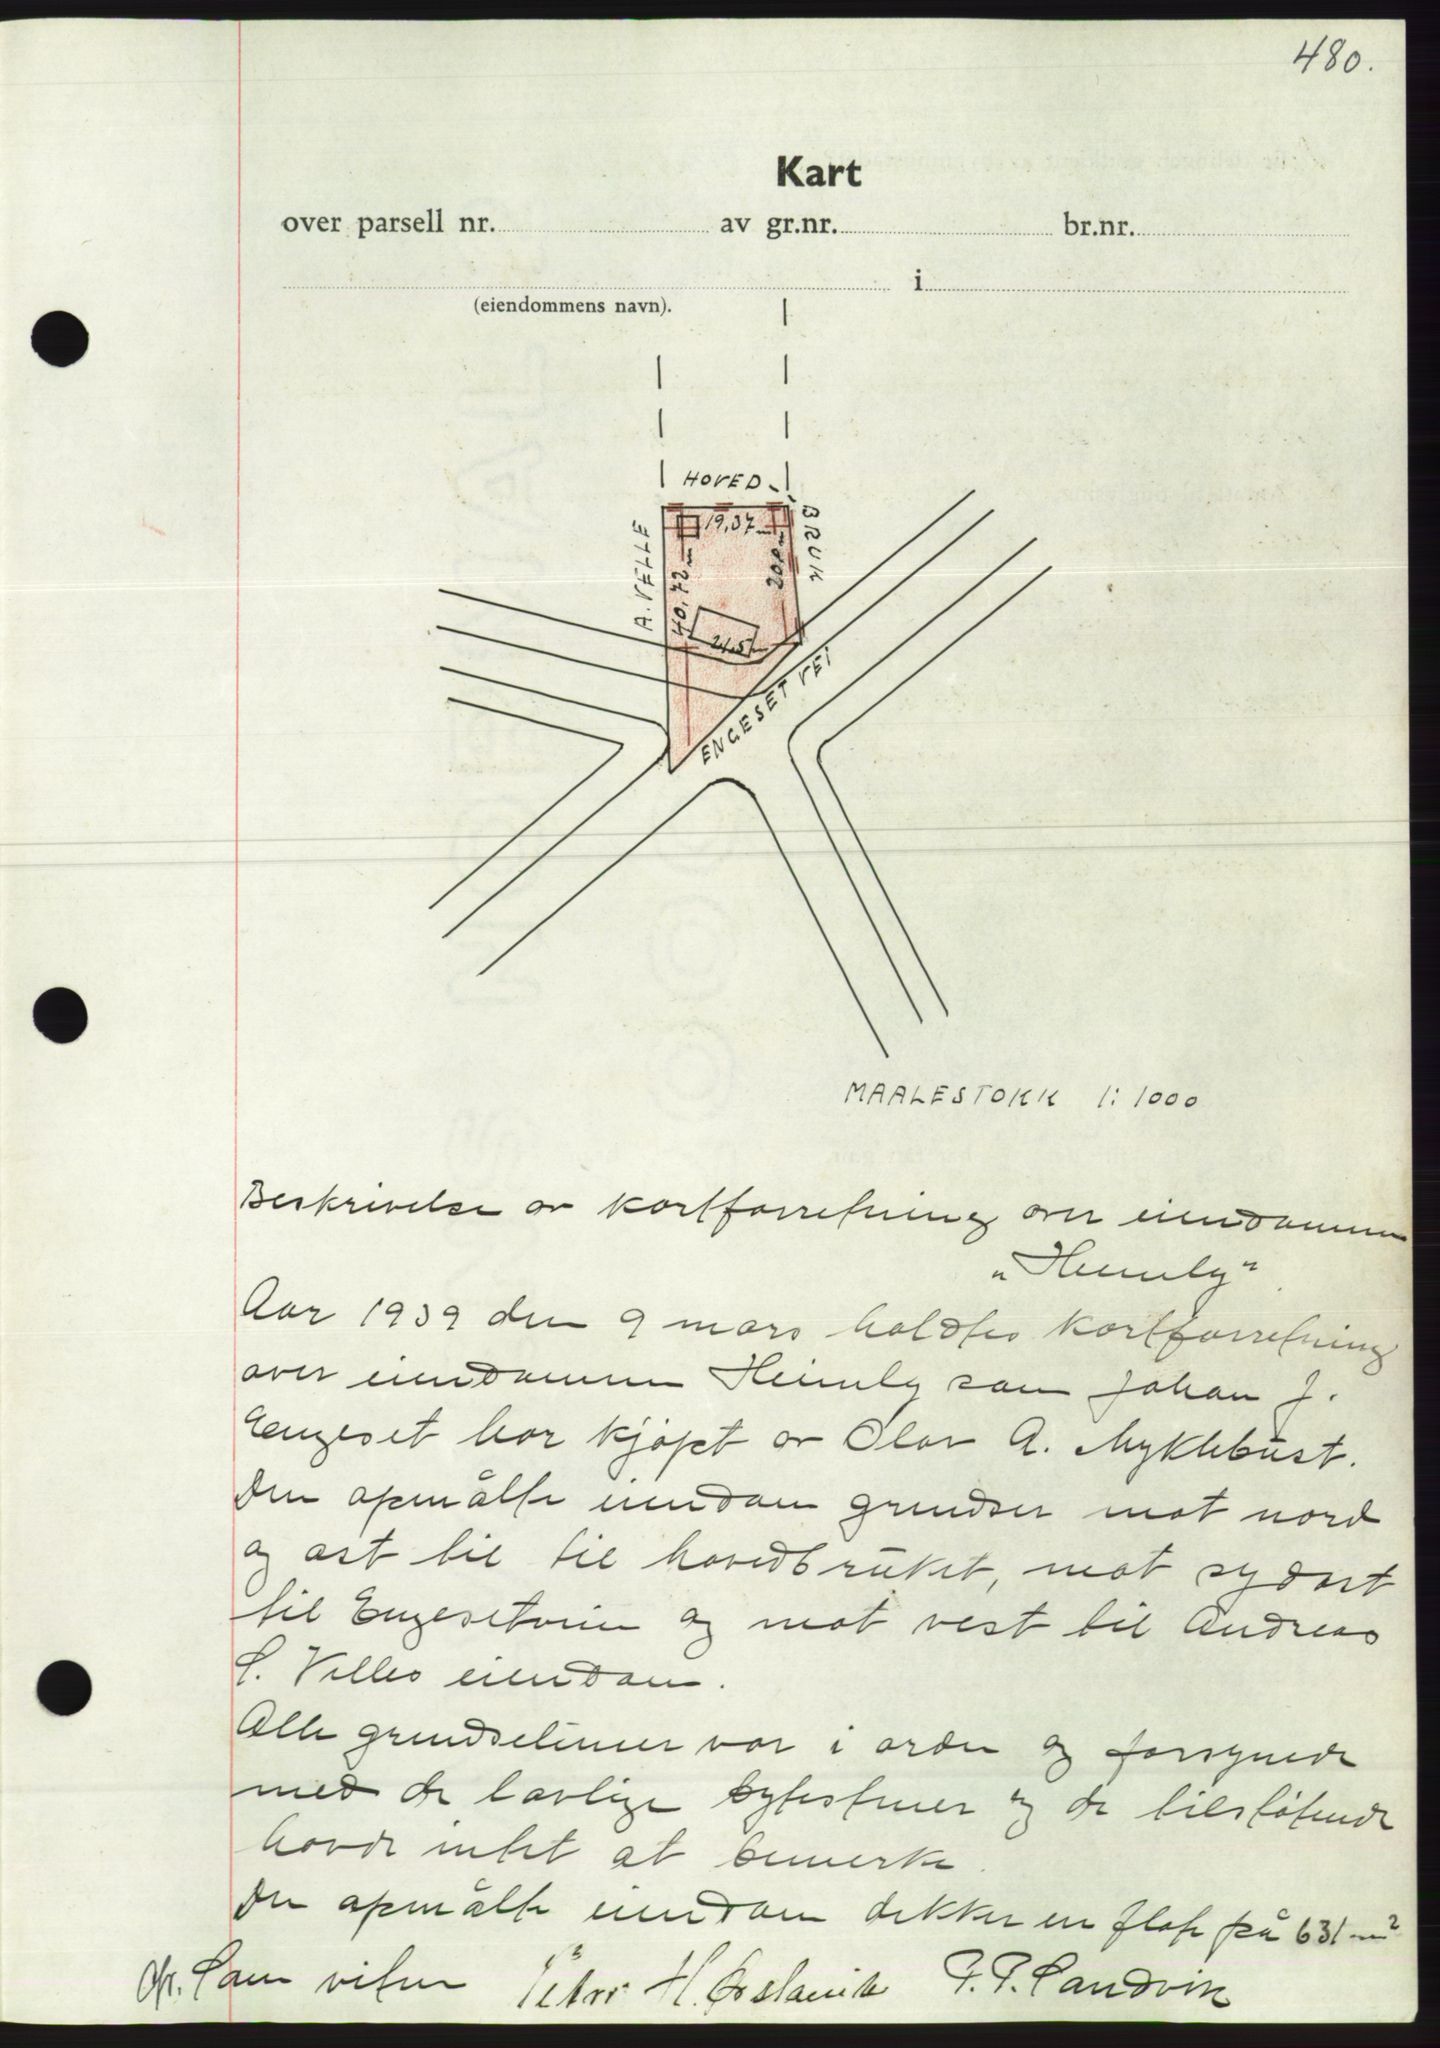 480.
Kart
over parsell nr. av gr.nr. br.nr.
i
(eiendommens navn).
HOVED-
BRUK
A. VELLE
19,37 m
40,72 m
20,0 m
24,5 m
ENGESET VEI
MAALESTOKK 1:1000
Beskrivelse av kartforretning over eiendommen
"Heimly"
Aar 1939 den 9 mars holdtes kartforretning
over eiendommen Heimly som Johan J.
Engeset har kjøpt av Olav A. Myklebust.
Den opmålte eiendom grendser mot nord
og øst til til hovedbruket, mot sydøst
til Engesetveien og mot vest til Andreas
S. Velles eiendom.
Alle grendselinier var i orden og forsynede
med de lovlige bytestener og de tilstøtende
havde intet at bemerke.
Den opmålte eiendom dekker en flate på 631 m²
Som vitner Peter H. Ørslavik P. P. Sandvik